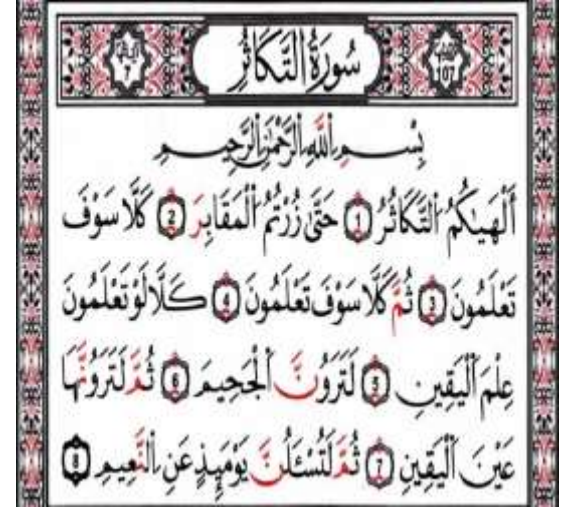 سُورَةُ التَّكَاثُرِ
7
107
بِسْمِ اللَّهِ الرَّحْمَٰنِ الرَّحِيمِ
أَلْهَيٰكُمُ التَّكَاثُرُ 1 حَتَّىٰ زُرْتُمُ الْمَقَابِرَ 2 كَلَّا سَوْفَ
تَعْلَمُونَ 3 ثُمَّ كَلَّا سَوْفَ تَعْلَمُونَ 4 كَلَّا لَوْ تَعْلَمُونَ
عِلْمَ الْيَقِينِ 5 لَتَرَوُنَّ الْجَحِيمَ 6 ثُمَّ لَتَرَوُنَّهَا
عَيْنَ الْيَقِينِ 7 ثُمَّ لَتُسْـَٔلُنَّ يَوْمَئِذٍ عَنِ النَّعِيمِ 8